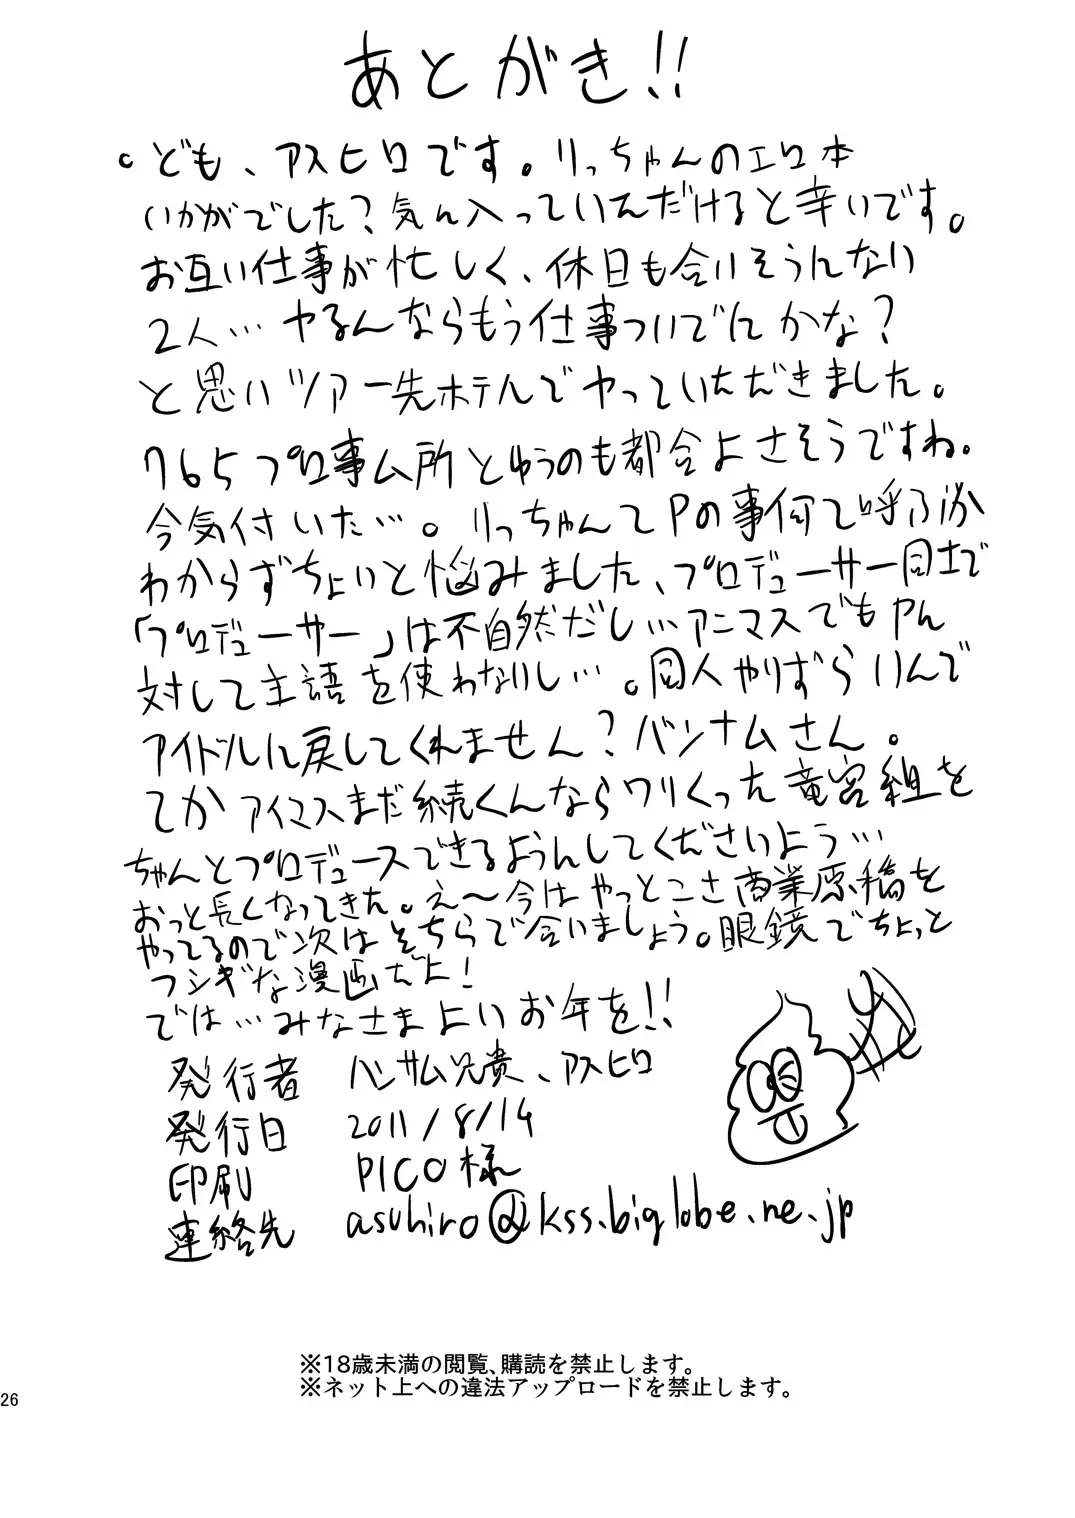 あとがき!!
。ども、アスヒロです。りっちゃんのエロ本
いかがでした?気に入っていただけると幸いです。
お互い仕事が忙しく、休日も合いそうにない
2人…ヤるんならもう仕事ついでにかな?
と思いツアー先ホテルでヤっていただきました。
765プロ事ム所とゆうのも都合よさそうですね。
今気付いた…。りっちゃんてPの事何て呼ぶか
わからずちょいと悩みました、プロデューサー同士で
「プロデューサー」は不自然だし…アニマスでもPに
対して主語を使わないし…。同人やりずらいんで
アイドルに戻してくれませんか?バンナムさん。
てかアイマスまだ続くんならワリくった竜宮組を
ちゃんとプロデュースできるようにしてくださいよう…
おっと長くなってきた。え〜今はやっとこさ商業原稿を
やってるので次はそちらで会いましょう。眼鏡でちょっと
フシギな漫画だよ!
では…みなさまよいお年を!!
発行者 ハンサム兄貴、アスヒロ
発行日 2011/8/14
印刷 PICO様
連絡先 asuhiro@kss.biglobe.ne.jp
※18歳未満の閲覧、購読を禁止します。
※ネット上への違法アップロードを禁止します。
26